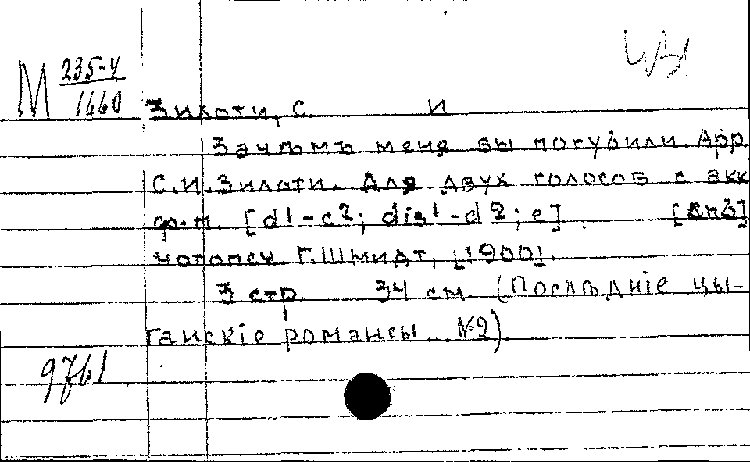 М 235-4
1660
Зилоти, С. И
Зачѣмъ меня вы погубили. Арр.
С.И.Зилоти. Для двух голосов с акк
ф.п. [d1-c2; dis1-d2; e].
Г.Шмидт, [1900].
3 стр. 34 см. (Послѣднiе цы-
ганскiе романсы. №9)
9761